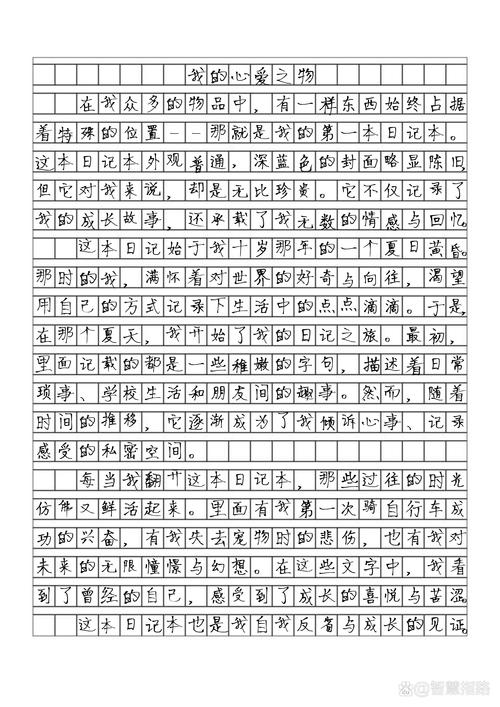 我的心爱之物
在我众多的物品中，有一样东西始终占据
着特殊的位置--那就是我的第一本日记本。
这本日记本外观普通，深蓝色的封面略显陈旧，
但它对我来说，却是无比珍贵。它不仅记录了
我的成长故事，还承载了我无数的情感与回忆。
这本日记始于我十岁那年的一个夏日黄昏。
那时的我，满怀着对世界的好奇与向往，渴望
用自己的方式记录下生活中的点点滴滴。于是，
在那个夏天，我开始了我的日记之旅。最初，
里面记载的都是一些稚嫩的字句，描述着日常
琐事、学校生活和朋友间的趣事。然而，随着
时间的推移，它逐渐成为了我倾诉心事、记录
感受的私密空间。
每当我翻开这本日记本，那些过往的时光
仿佛又鲜活起来。里面有我第一次骑自行车成
功的兴奋，有我失去宠物时的悲伤，也有我对
未来的无限憧憬与幻想。在这些文字中，我看
到了曾经的自己，感受到了成长的喜悦与苦涩。
这本日记本也是我自我反省与成长的见证。
智慧指路